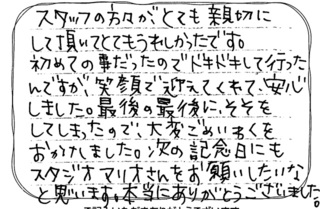 スタッフの方々がとても親切に
して頂いてとてもうれしかったです。
初めての事だったのでドキドキして行った
んですが、笑顔で迎えてくれて、安心
しました。最後の最後に、そそを
してしまったので、大変ごめいわくを
おかけしました。次の記念日にも
スタジオマリオさんをお願いしたいな
と思います。本当にありがとうございました。